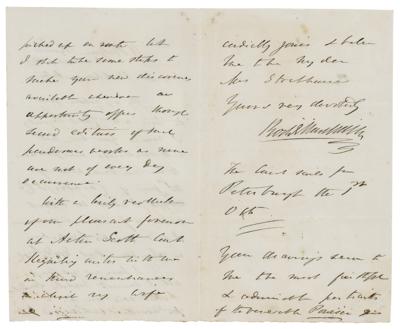 picked up on route but
I shall take some steps to
make your new discoveries
available whenever an
opportunity offers though
second editions of such
ponderous works as mine
are not of every day
occurrence.
With a lively recollection
of our pleasant
at Acton Scott Court
Regarding unites with me
in kind remembrances
in which my wife
cordially joins & believe
me to be my dear
Mrs Stackhouse
Yours very devotedly
Rod I Murchison
The Court sails for
Petersburgh the 1st
Your drawings seem to
me the most faithful
& admirable portraits
of the venerable